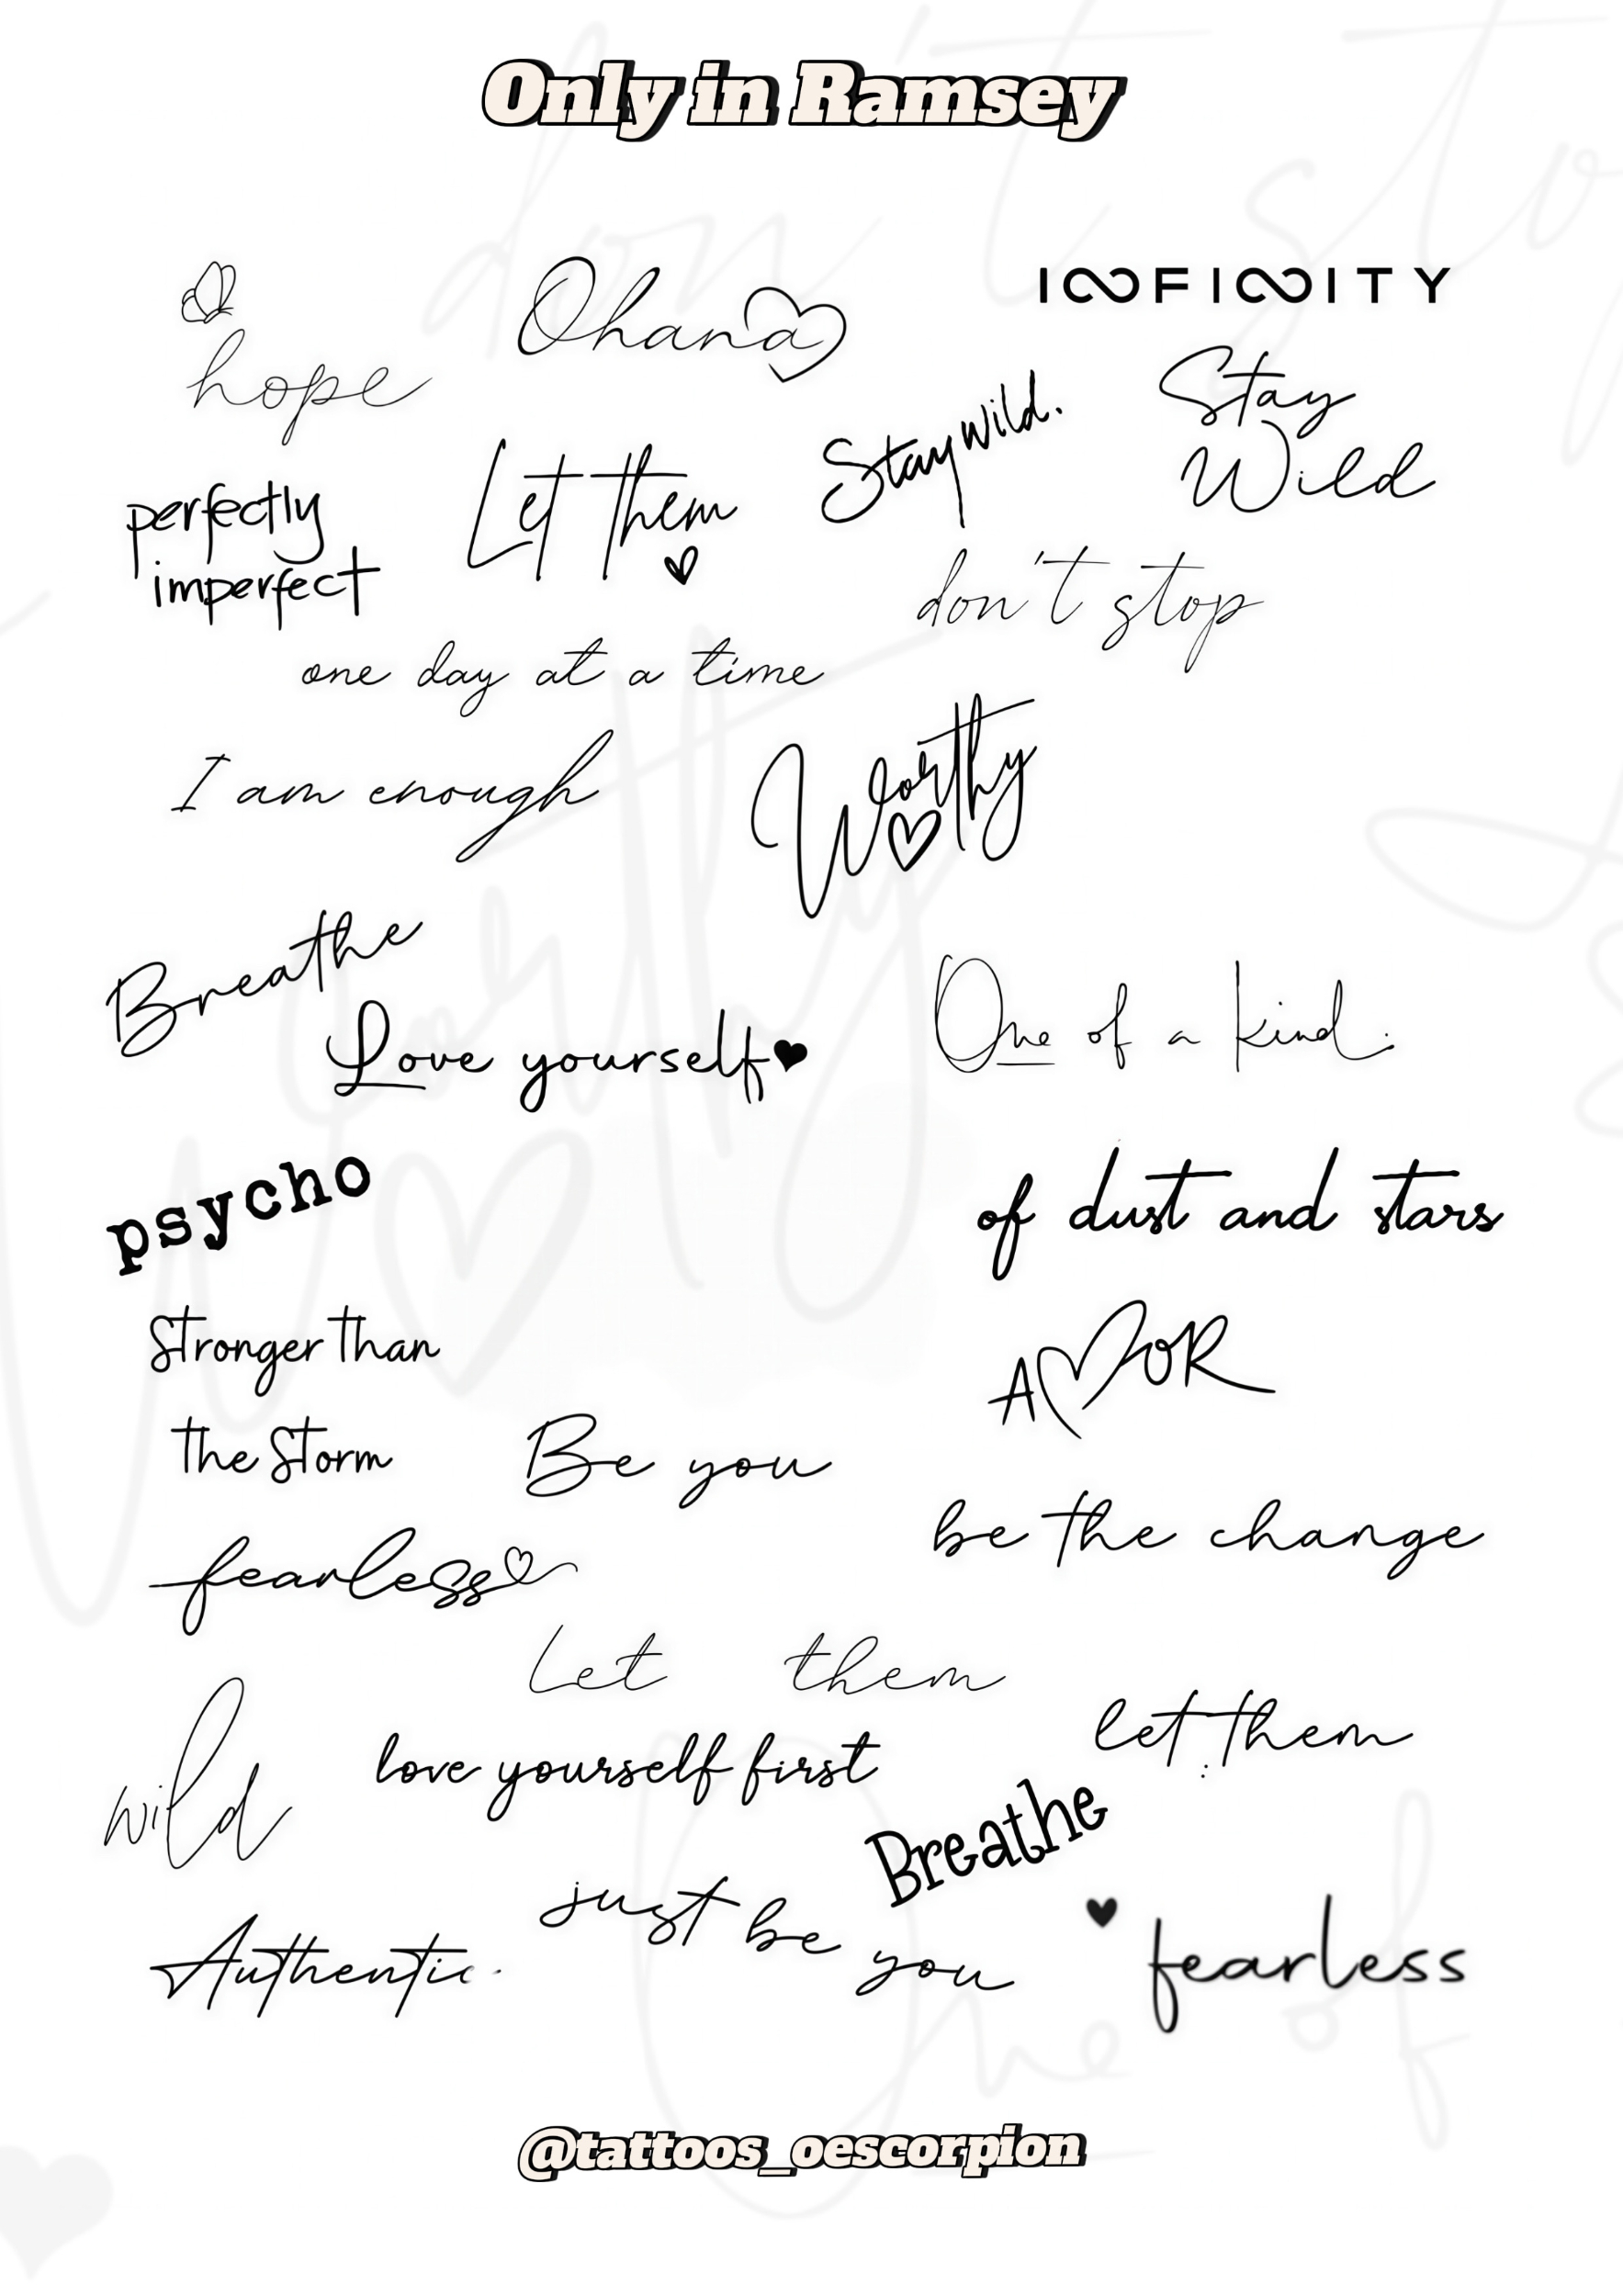 Only in Ramsey
hope
Ohana
I∞FI∞ITY
Stay
Wild
Stay wild.
perfectly
imperfect
Let them
don't stop
one day at a time
I am enough
Worthy
Breathe
Love yourself
One of a kind.
psycho
of dust and stars
Stronger than
the Storm
AMOR
Be you
be the change
fearless
Let them
let them
wild
love yourself first
Breathe
Authentic.
just be you
fearless
@tattoos_oescorpion